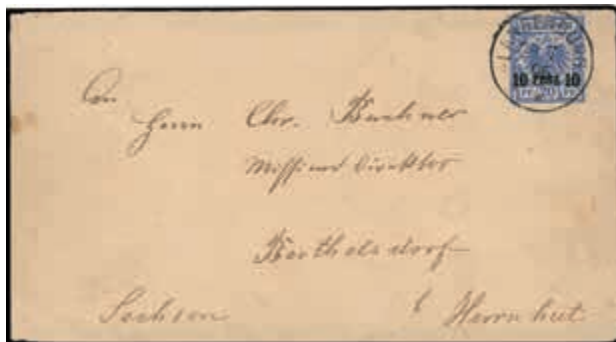 10 PESA 10
20
An
Herrn Chr. Buchner
Missions Direktor
Berthelsdorf
Sachsen b Herrnhut